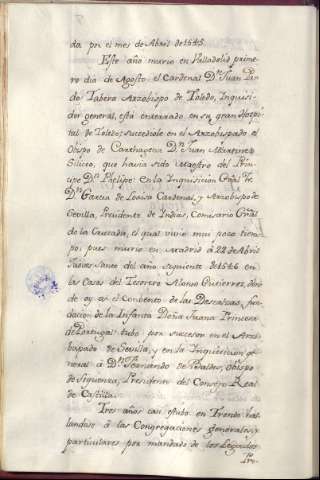 da por el mes de Abril de 1545.
Este año murio en Valladolid prime-
ro dia de Agosto el Cardenal Dn Juan Par-
do Tabera Arzobispo de Toledo, Inquisi-
dor general, está enterrado en su gran Hospi-
tal de Toledo; succedióle en el Arzobispado el
Obispo de Carthagena Dn Juan Martinez
Siliceo, que havia sido Maestro del Prin-
cipe Dn Phelipe: En la Inquisicion Gral Fr.
Dn Garcia de Loaisa Cardenal, y Arzobispo de
Sevilla, Presidente de Indias, Comisario Gral
de la Cruzada, el qual vivió mui poco tiem-
po, pues murio en Madrid á 22 de Abril
Jueves Santo del año siguiente de 1546 en
las Casas del Tesorero Alonso Gutierrez, don-
de oy es el Convento de las Descalzas, fun-
dacion de la Infanta Doña Juana Princesa
de Portugal: tubo por succesor en el Arzo-
bispado de Sevilla, y en la Inquisicion ge-
neral á Dn Fernando de Valdes, Obispo
de Siguenza, Presidente del Consejo Real
de Castilla.
Tres años cau estubo en Trento ha-
llandose á las Congregaciones generales, y
particulares por mandado de los Legados